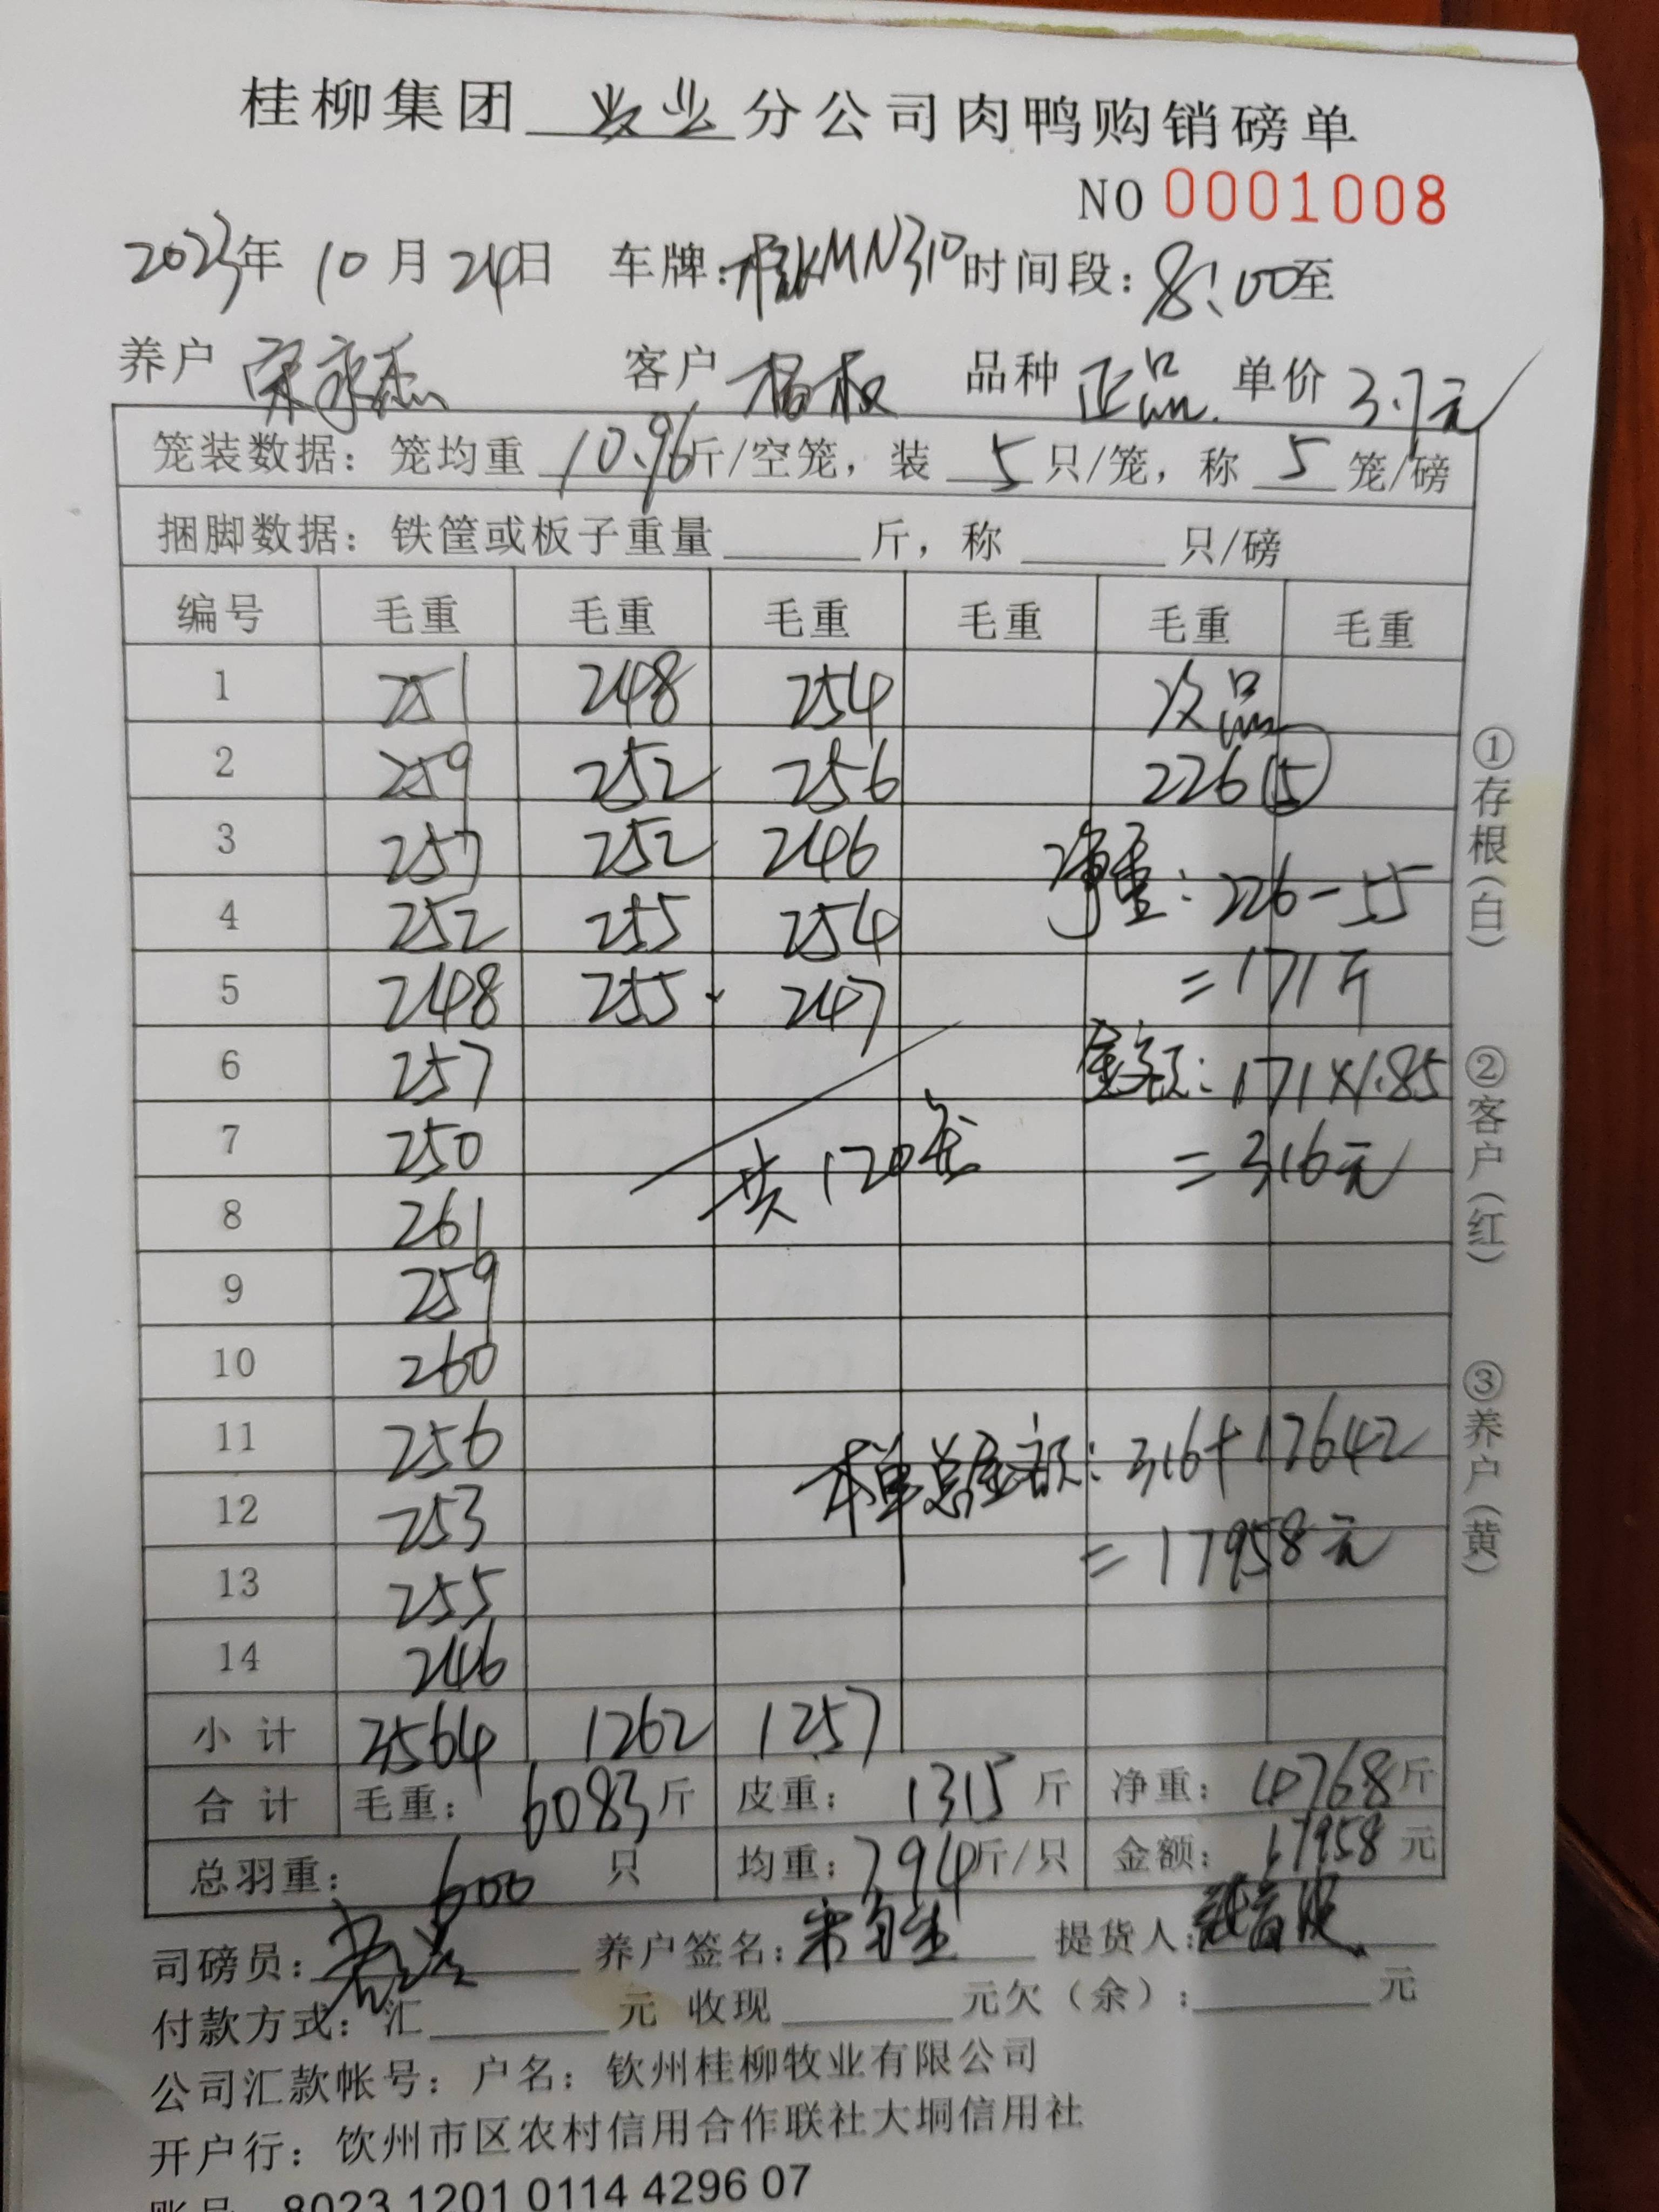 桂柳集团 牧业 分公司肉鸭购销磅单
NO 0001008
2023年 10月 24日 车牌:桂KMN310 时间段:8:00至
养户 宋家杰 客户 杨权 品种 正品. 单价 3.7元
笼装数据：笼均重 10.96斤/空笼，装 5 只/笼，称 5 笼/磅
捆脚数据：铁筐或板子重量 斤，称 只/磅
编号 毛重 毛重 毛重 毛重 毛重 毛重
1 251 248 254 次品
2 259 252 256 226 15
3 257 252 246
净重：226-55
4 252 255 254
5 248 255 247 =171斤
6 257 金额：171×1.85
7 250 共120笼 =316元
8 261
9 259
10 260
11 256 本单总金额：316+17642
12 253
=17958元
13 255
14 246
小计 3564 1262 1257
合计 毛重：6083斤 皮重：1315斤 净重：4768斤
总羽重：600 只 均重：7.94斤/只 金额：17958元
司磅员： 养户签名： 提货人：
付款方式：汇 元 收现 元欠（余）： 元
公司汇款帐号：户名：钦州桂柳牧业有限公司
开户行：钦州市区农村信用合作联社大垌信用社
账号 8023 1201 0114 4296 07
①存根（白）
②客户（红）
③养户（黄）